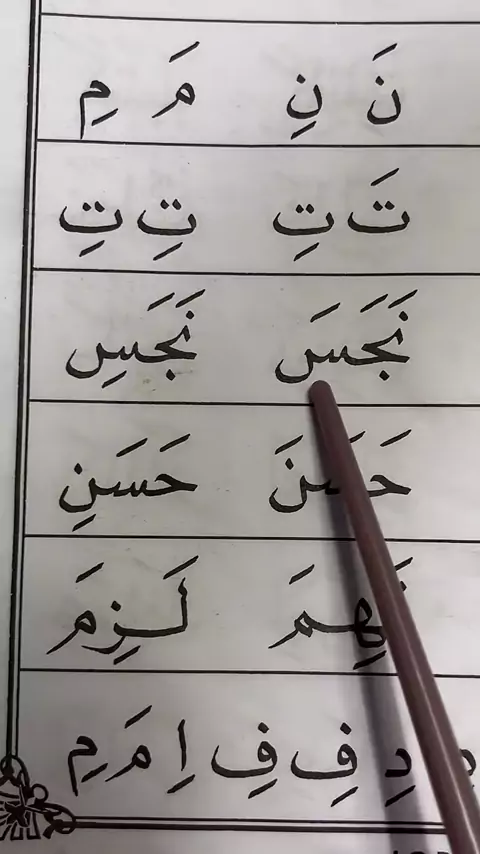 نَ نِ مَ مِ
تَ تِ تِ تِ
نَجَسَ نَجَسِ
حَسَنَ حَسَنِ
لَزِمَ
دِ فِ فِ اِ مَ مِ